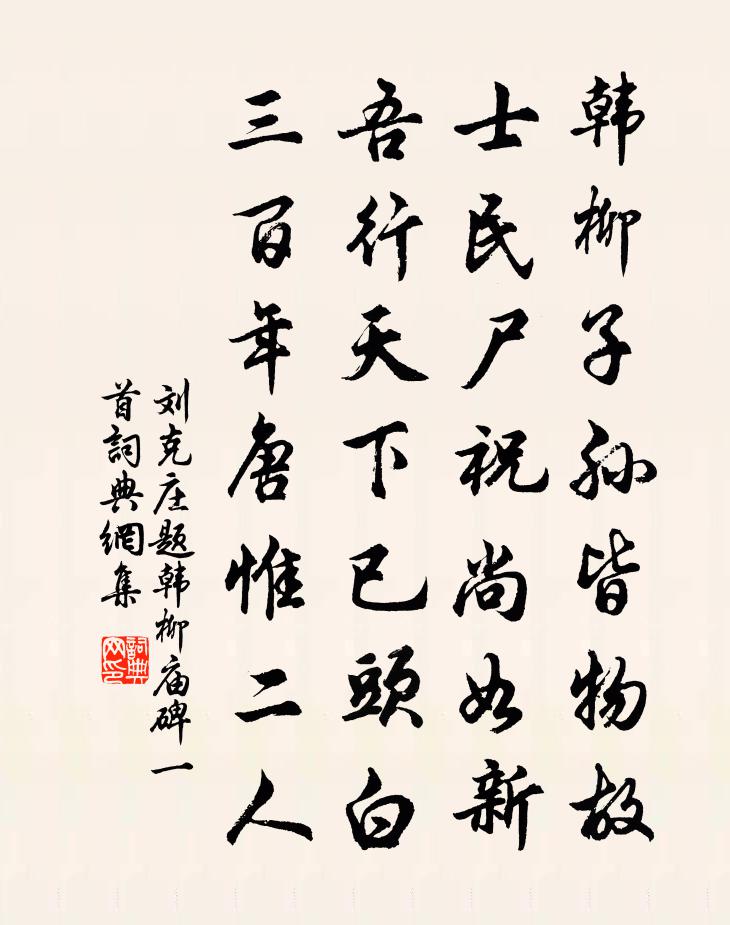 韩柳子孙皆物故
士民尸祝尚如新
吾行天下已頭白
三百年唐惟二人
刘克庄题韩柳庙碑一
首詞典網集
詞典网印